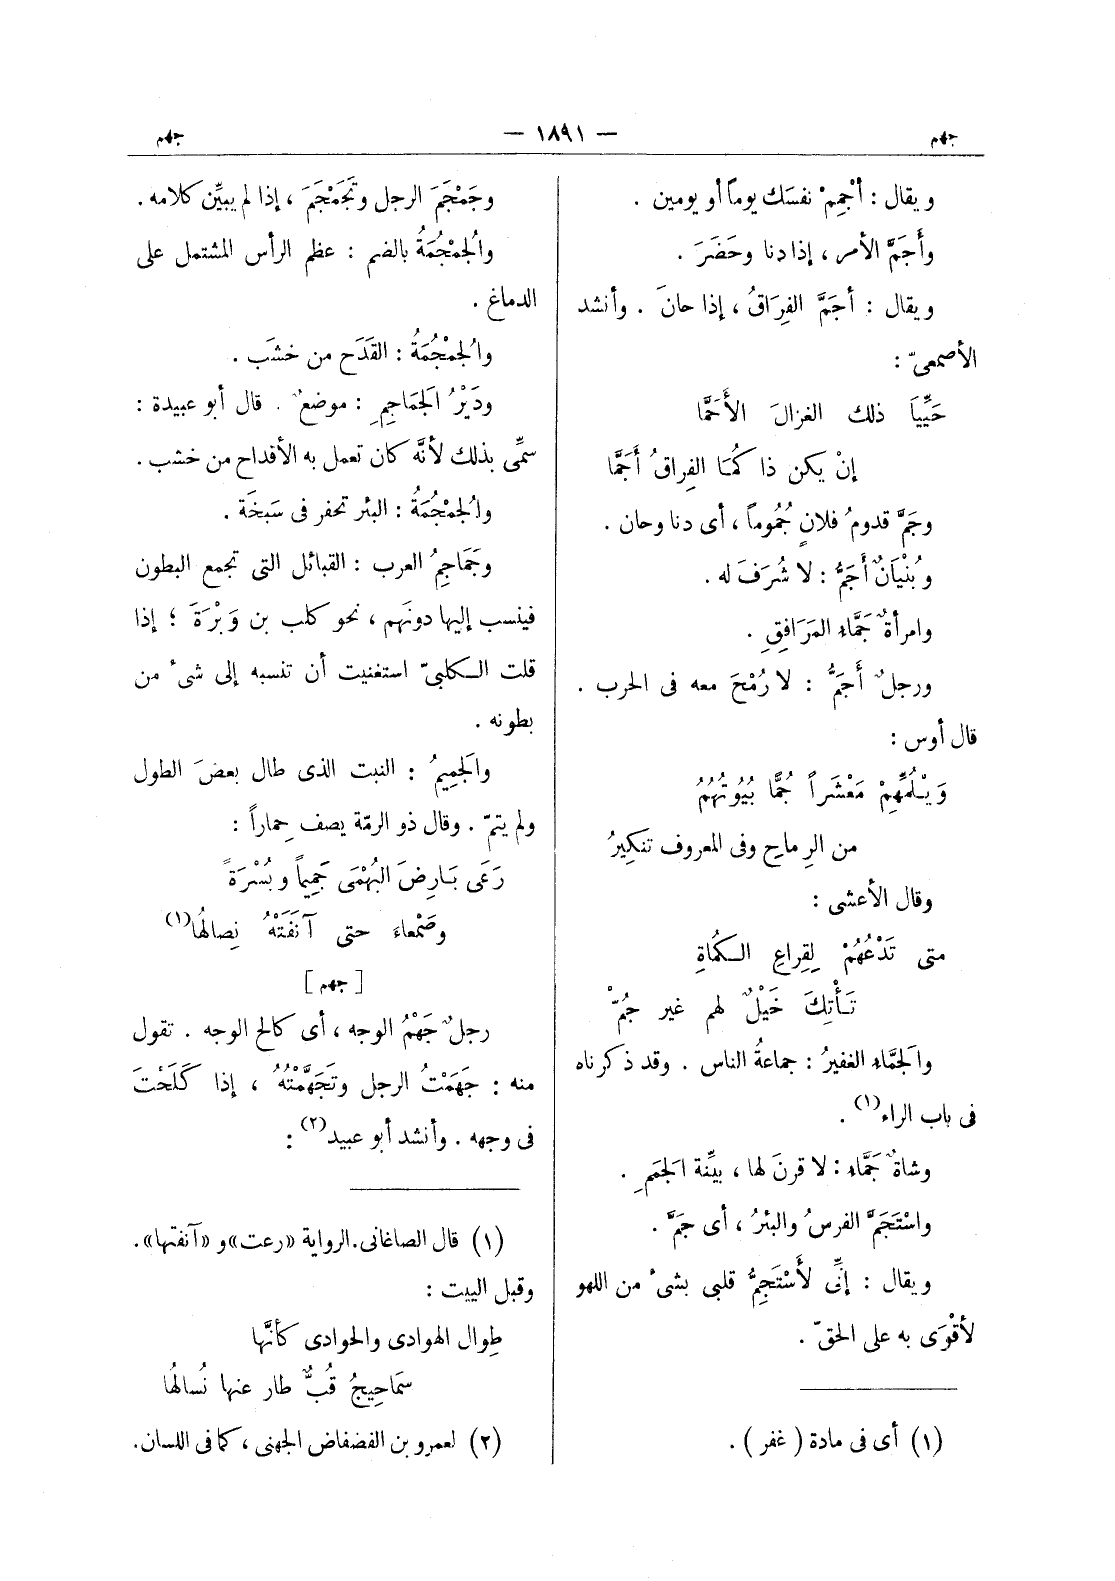 جهم
— ١٨٩١ —
جهم
ويقال : أَجْمِمْ نفسَك يوماً أو يومين .
وأَجَمَّ الأمر ، إذا دنا وحَضَرَ .
ويقال : أجَمَّ الفِرَاقُ ، إذا حانَ . وأنشد
الأصمعىّ :
حَيِّيَا ذلك الغزالَ الأَحَمَّا
إنْ يكن ذا كُمَا الفِراقُ أَجَمَّا
وجَمَّ قدومُ فلانٍ جُمُوماً ، أى دنا وحان .
وبُنْيَانٌ أَجَمُّ : لا شُرَفَ له .
وامرأةٌ جَمَّاء المَرَافِقِ .
ورجلٌ أَجَمُّ : لا رُمْحَ معه فى الحرب .
قال أوس :
وَيْلُمِّهِمْ مَعْشَراً جُمًّا بُيُوتُهُمُ
من الرِماحِ وفى المعروف تنكِيرُ
وقال الأعشى :
متى تَدْعُهُمْ لِقِراعِ الكُمَاةِ
تَأْتِكَ خَيْلٌ لهم غير جُمّْ
والجَمَّاء الغفيرُ : جماعةُ الناس . وقد ذكرناه
فى باب الراء (١) .
وشاةٌ جَمَّاء : لا قرنَ لها ، بيِّنة الجَمَمِ .
واسْتَجَمَّ الفرسُ والبئرُ ، أى جَمَّ .
ويقال : إنِّى لأَسْتَجِمُّ قلبى بشىءٍ من اللهو
لأقْوَى به على الحقّ .
(١) أى فى مادة ( غفر ) .
وجَمْجَمَ الرجل وتَجَمْجَمَ ، إذا لم يبيِّن كلامه .
والجُمْجُمَةُ بالضم : عظم الرأس المشتمل على
الدماغ .
والجُمْجُمَةُ : القَدَح من خشَب .
ودَيْرُ الجَمَاجِمِ : موضعٌ . قال أبو عبيدة :
سمِّى بذلك لأنَّه كان تعمل به الأقداح من خشب .
والجُمْجُمَةُ : البئر تحفر فى سَبَخَة .
وجَمَاجِمُ العرب : القبائل التى تجمع البطون
فينسب إليها دونَهم ، نحو كلب بن وَبْرَةَ ؛ إذا
قلت الكلبىّ استغنيت أن تنسبه إلى شىء من
بطونه .
والجَمِيمُ : النبت الذى طال بعضَ الطول
ولم يتمّ . وقال ذو الرمّة يصف حِماراً :
رَعَى بَارِضَ البُهْمَى جَمِيماً وبُسْرَةً
وصَمْعاءَ حتى آنَفَتْهُ نِصالُها (١)
[ جهم ]
رجلٌ جَهْمُ الوجه ، أى كالح الوجه . تقول
منه : جَهَمْتُ الرجل وتَجَهَّمْتُهُ ، إذا كَلَحْتَ
فى وجهه . وأنشد أبو عبيد (٢) :
(١) قال الصاغانى. الرواية «رعت» و «آنفتها».
وقبل البيت :
طِوال الهوادى والحوادى كأنَّها
سَمَاحِيجُ قُبٌّ طار عنها نُسالُها
(٢) لعمرو بن الفضفاض الجهنى ، كما فى اللسان.